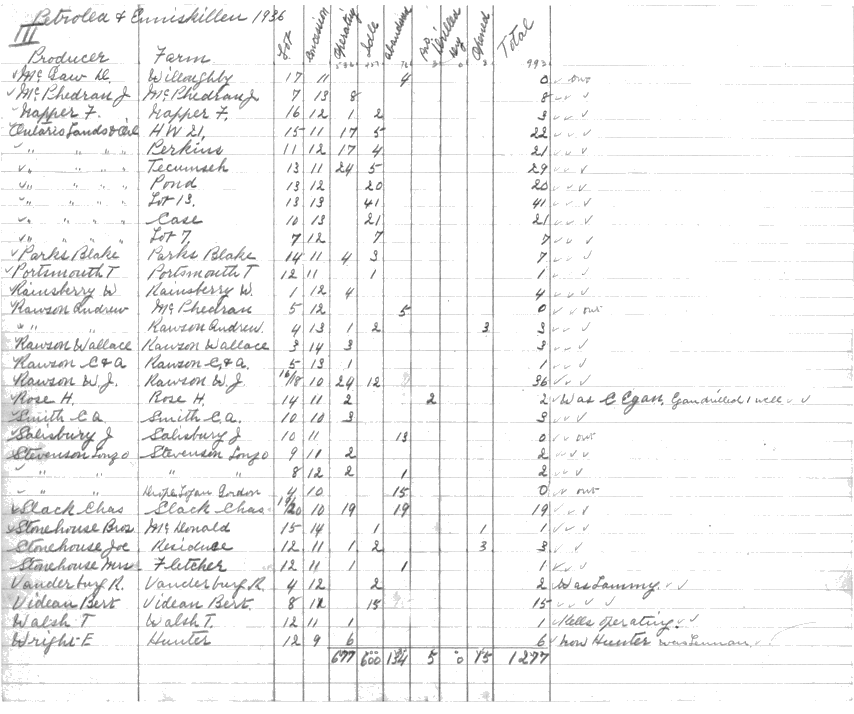 Petrolea & Enniskillen 1936
III
Producer Farm Lot Concession Operating Idle Abandoned Drilled Opened Total
993
McCaw D. Willoughby 17 11 4 0 out
McPhedran J McPhedran J 7 13 8 8
Mapper F. Mapper F. 16 12 1 2 3
Ontario Lands & Oil HW 21, 15 11 17 5 22
" " " " Perkins 11 12 17 4 21
" " " " Tecumseh 13 11 24 5 29
" " " " Pond 13 12 20 20
" " " " Lot 13. 13 13 41 41
" " " " Case 10 13 21 21
" " " " Lot 7, 7 12 7 7
Parks Blake Parks Blake 14 11 4 3 7
Portsmouth T Portsmouth T 12 11 1 1
Rainsberry W Rainsberry W. 1 12 4 4
Rawson Andrew McPhedran 5 12 5 0 out
" " Rawson Andrew. 4 13 1 2 3 3
Rawson Wallace Rawson Wallace 3 14 3 3
Rawson C & A Rawson C, & A. 5 13 1 1
Rawson W. J. Rawson W. J. 16/18 10 24 12 36
Rose H. Rose H. 14 11 2 2 2 Was C Egan, drilled 1 well
Smith C A Smith C. A. 10 10 3 3
Salisbury J Salisbury J 10 11 13 0 out
Stevenson Lonzo Stevenson Lonzo 9 11 2 2
" " " " 8 12 2 1 2
" " Logan Gordon 4 10 15 0 out
Slack Chas Slack Chas 19/20 10 19 19 19
Stonehouse Bros McDonald 15 14 1 1 1
Stonehouse Joe Residue 12 11 1 2 3 3
Stonehouse Mrs Fletcher 12 11 1 1 1
Vanderburg R. Vanderburg R. 4 12 2 2 Was Lammy
Videan Bert Videan Bert. 8 12 15 15
Walsh T Walsh T. 12 11 1 1 Wells operating.
Wright E Hunter 12 9 6 6 now Hunter was Lennan
677 600 134 5 0 15 1277